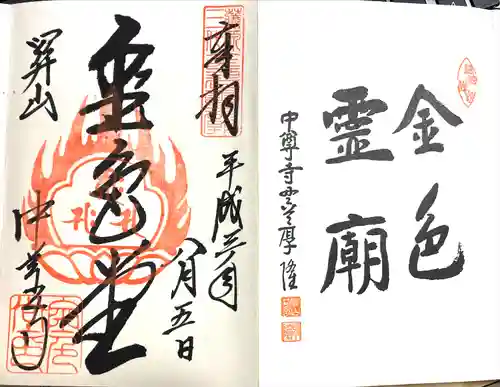 奉拝
平成三〇年
八月五日
金色堂
関山
中尊寺
金色
靈廟
中尊寺
厚隆